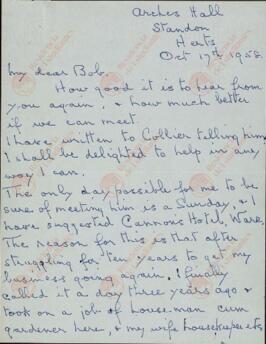 Arches Hall
Standon
Herts
Oct 17th 1958.
My dear Bob.
How good it is to hear from
you again, & how much better
if we can meet
I have written to Collier telling him
I shall be delighted to help in any
way I can.
The only day possible for me to be
sure of meeting him is a Sunday, & I
have suggested Cannons Hotel, Ware.
The reason for this is that after
struggling for ten years to get my
business going again, I finally
called it a day three years ago &
took on a job of houseman cum
gardener here, & my wife housekeeper etc